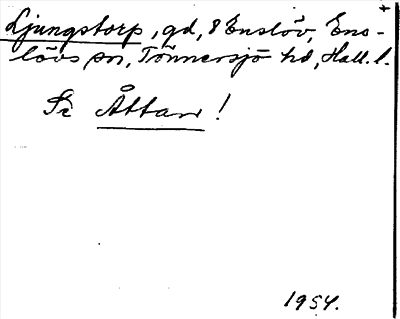 Ljungstorp, gd, 8 Enslöv, Ens-
lövs sn, Tönnersjö hd, Hall. l.
Se Åttan!
1954.